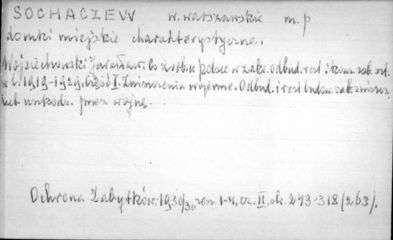 SOCHACZEW w. warszawskie m. p
domki miejskie charakterystyczne.
Wojciechowski Jarosław: Co zrob. w Polsce w zakr. odbud. rest. i kons. zab. szt.
w l. 1919-1929. Część I. Zniszczenia wojenne. Odbud. i rest. budow. zab. zniszcz.
lub uszkodz. przez wojnę.
Ochrona Zabytków 1930/31, zesz. 1-4, cz. II, str. 273-318 /263/.